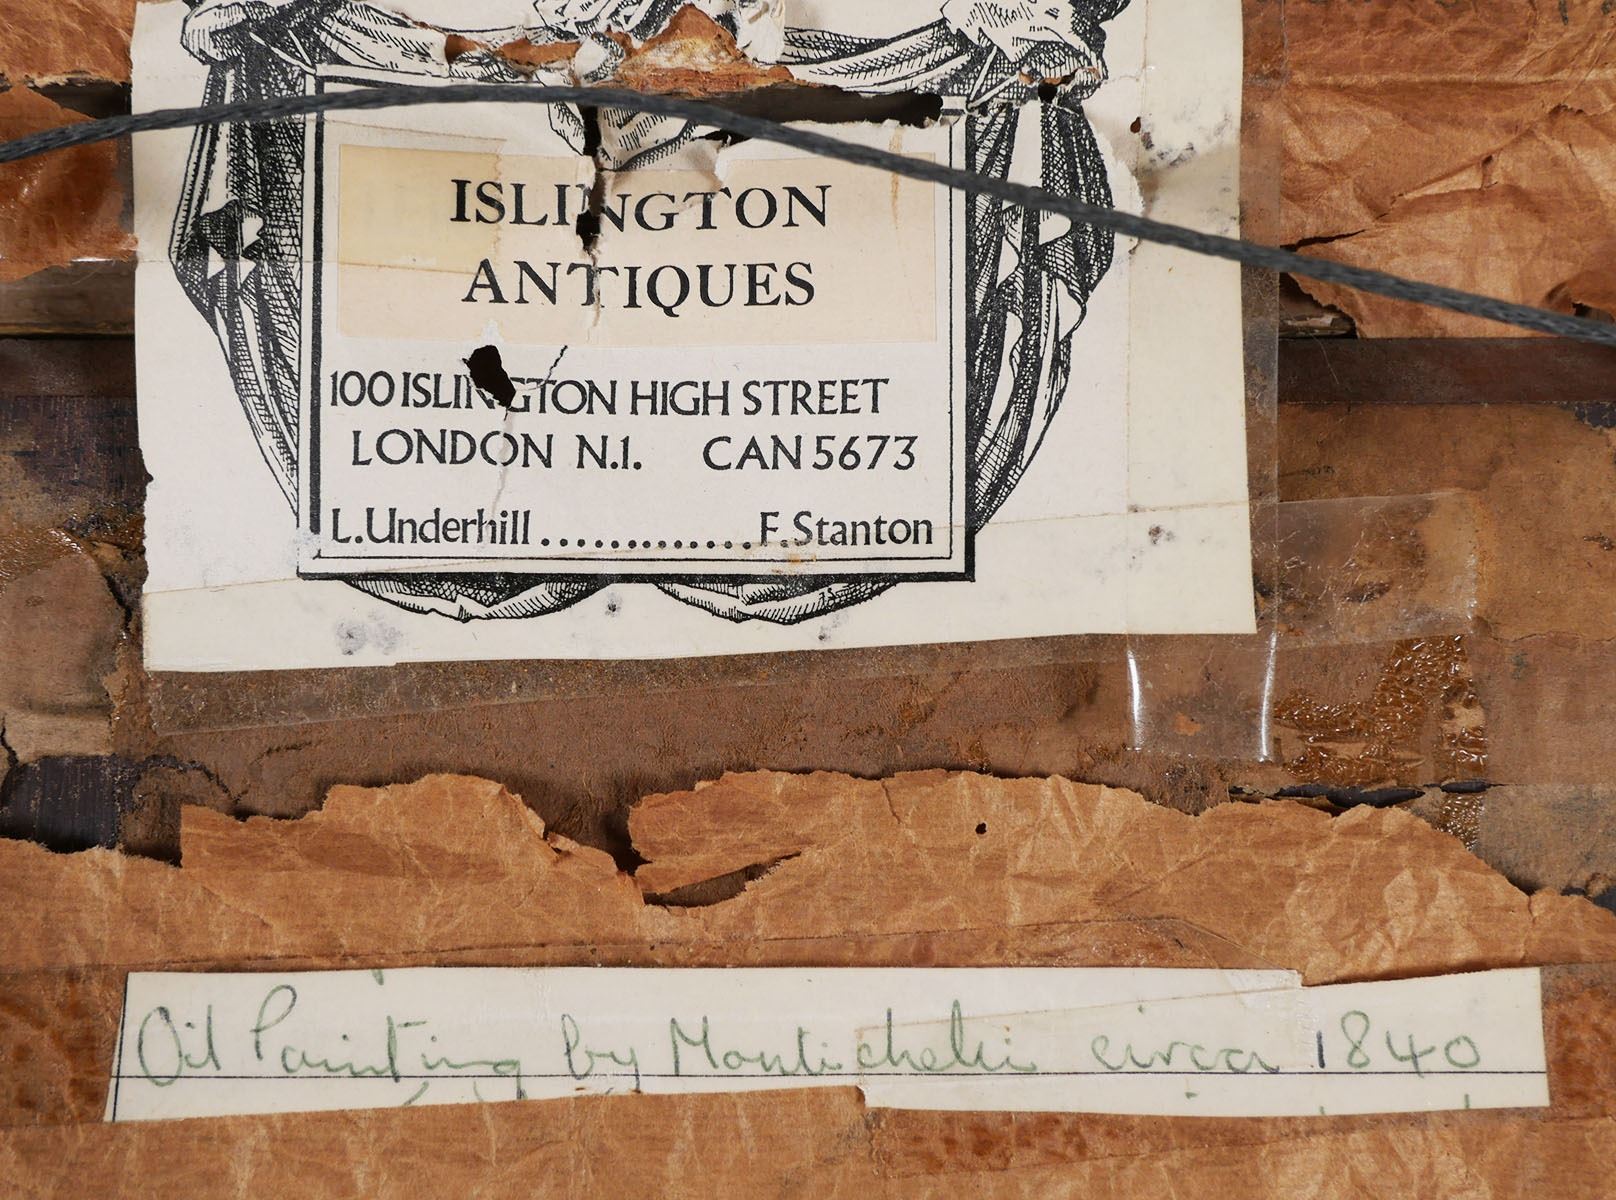 ISLINGTON
ANTIQUES
100 ISLINGTON HIGH STREET
LONDON N.1. CAN 5673
L.Underhill..............F.Stanton
Oil Painting by Montichelui circa 1840